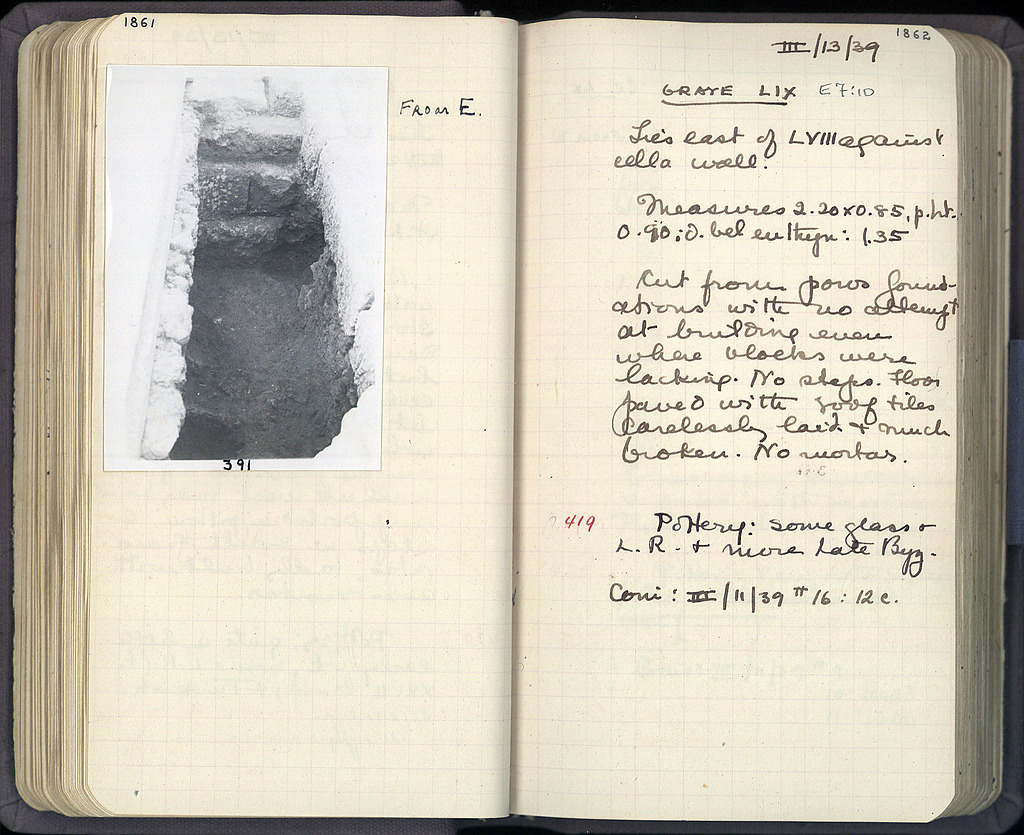 1861
From E.
391
1862
III/13/39
GRAVE LIX E7:10
Lies east of LVIII against
cella wall.
Measures 2.20x0.85, p.ht.
0.90; d. bel euthyn: 1.35
Cut from poros found-
ations with no attempt
at building even
where blocks were
lacking. No steps. Floor
paved with roof tiles
carelessly laid + much
broken. No mortar.
419
Pottery: some glass +
L. R. + more Late Byz.
Coin: III/11/39 #16: 12 c.